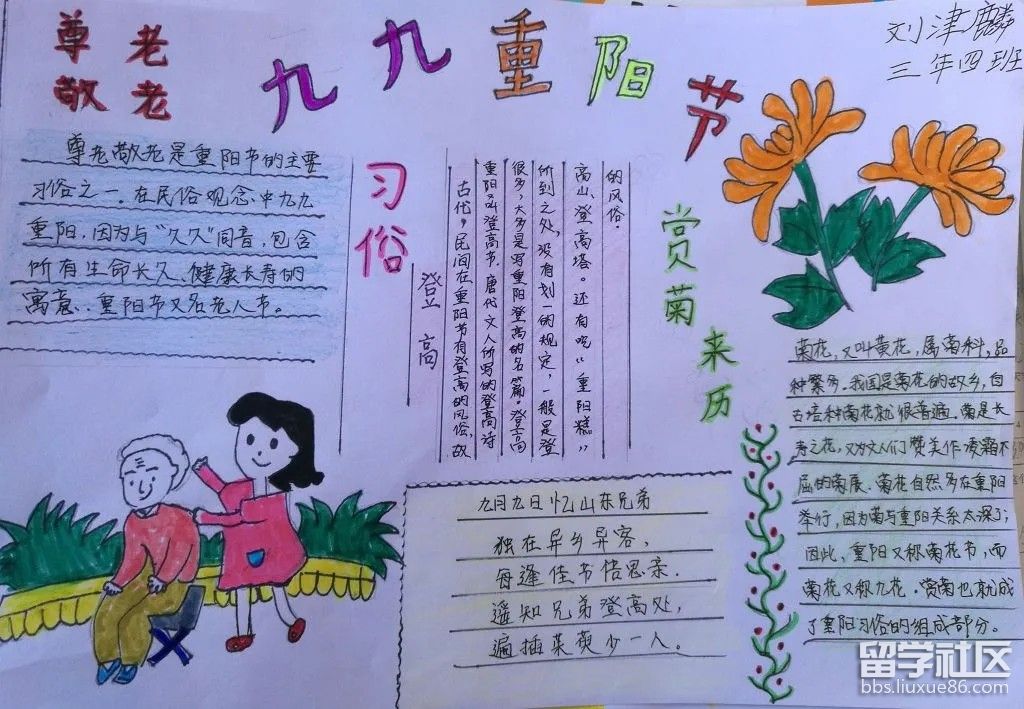 尊老
敬老
九九重阳节
刘津麟
三年四班
尊老敬老是重阳节的主要
习俗之一。在民俗观念中九九
重阳,因为与“久久”同音,包含
所有生命长久、健康长寿的
寓意..重阳节又名老人节。
习俗
登高
古代,民间在重阳节有登高的风俗,故
重阳叫登高节.唐代文人所写的登高诗
很多,大多是写重阳登高的名篇.登高
所到之处,没有划一的规定,一般是登
高山、登高塔。还有吃“重阳糕”
的风俗.
赏菊来历
菊花,又叫黄花,属菊科,品
种繁多.我国是菊花的故乡,自
古培种菊花就很普遍.菊是长
寿之花,又为文人们赞美作凌霜不
屈的菊展.菊花自然多在重阳
举行,因为菊与重阳关系太深了;
因此,重阳又称菊花节,而
菊花又称九花.赏菊也就成
了重阳习俗的组成部分。
九月九日忆山东兄弟
独在异乡异客,
每逢佳节倍思亲.
遥知兄弟登高处,
遍插茱萸少一人。
留学社区
bbs.liuxue86.com